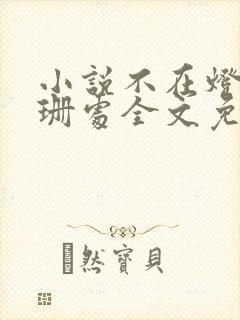 小說不在燈
珊處全文免
然寶貝